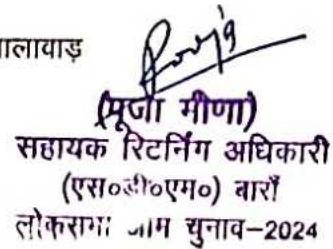 ालावाड़
Pooja
(पूजा मीणा)
सहायक रिटर्निंग अधिकारी
(एस०डी०एम०) बारॉं
लोकसभा आम चुनाव-2024